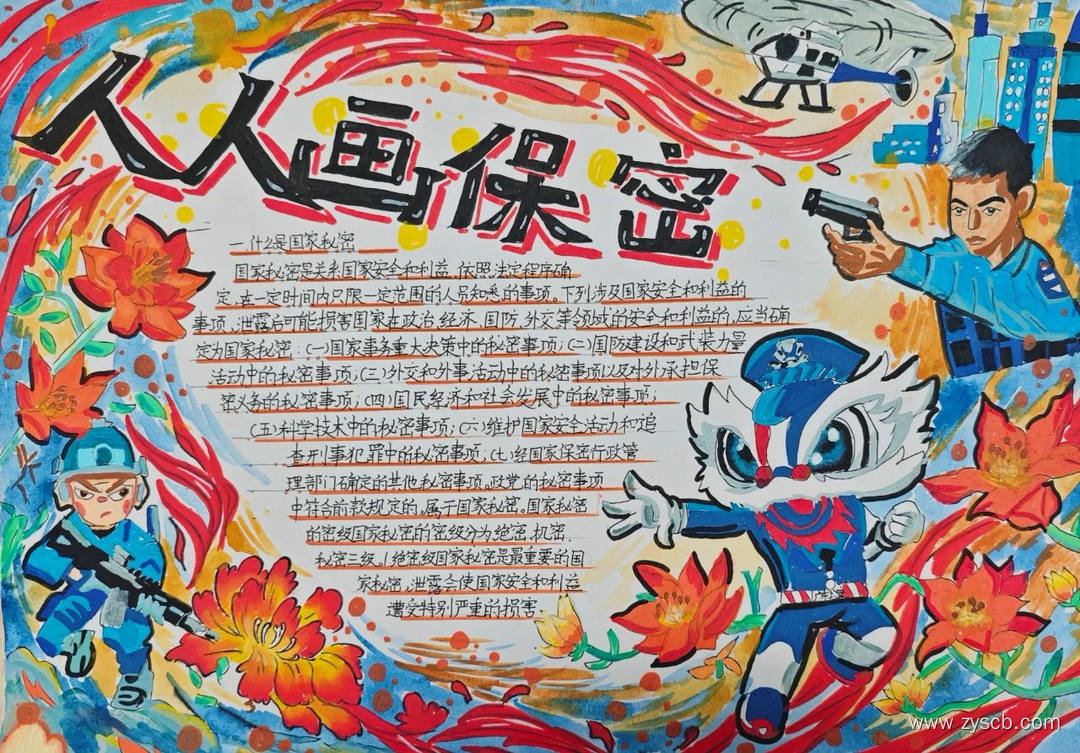 人人画保密
一.什么是国家秘密
国家秘密是关系国家安全和利益,依照法定程序确
定,在一定时间内只限一定范围的人员知悉的事项。下列涉及国家安全和利益的
事项,泄露后可能损害国家在政治,经济,国防,外交等领域的安全和利益的,应当确
定为国家秘密:(一)国家事务重大决策中的秘密事项;(二)国防建设和武装力量
活动中的秘密事项;(三)外交和外事活动中的秘密事项以及对外承担保
密义务的秘密事项;(四)国民经济和社会发展中的秘密事项;
(五)科学技术中的秘密事项;(六)维护国家安全活动和追
查刑事犯罪中的秘密事项;(七)经国家保密行政管
理部门确定的其他秘密事项。政党的秘密事项
中符合前款规定的,属于国家秘密。国家秘密
的密级国家秘密的密级分为绝密,机密,
秘密三级。1绝密级国家秘密是最重要的国
家秘密,泄露会使国家安全和利益
遭受特别严重的损害.
www.zyscb.com